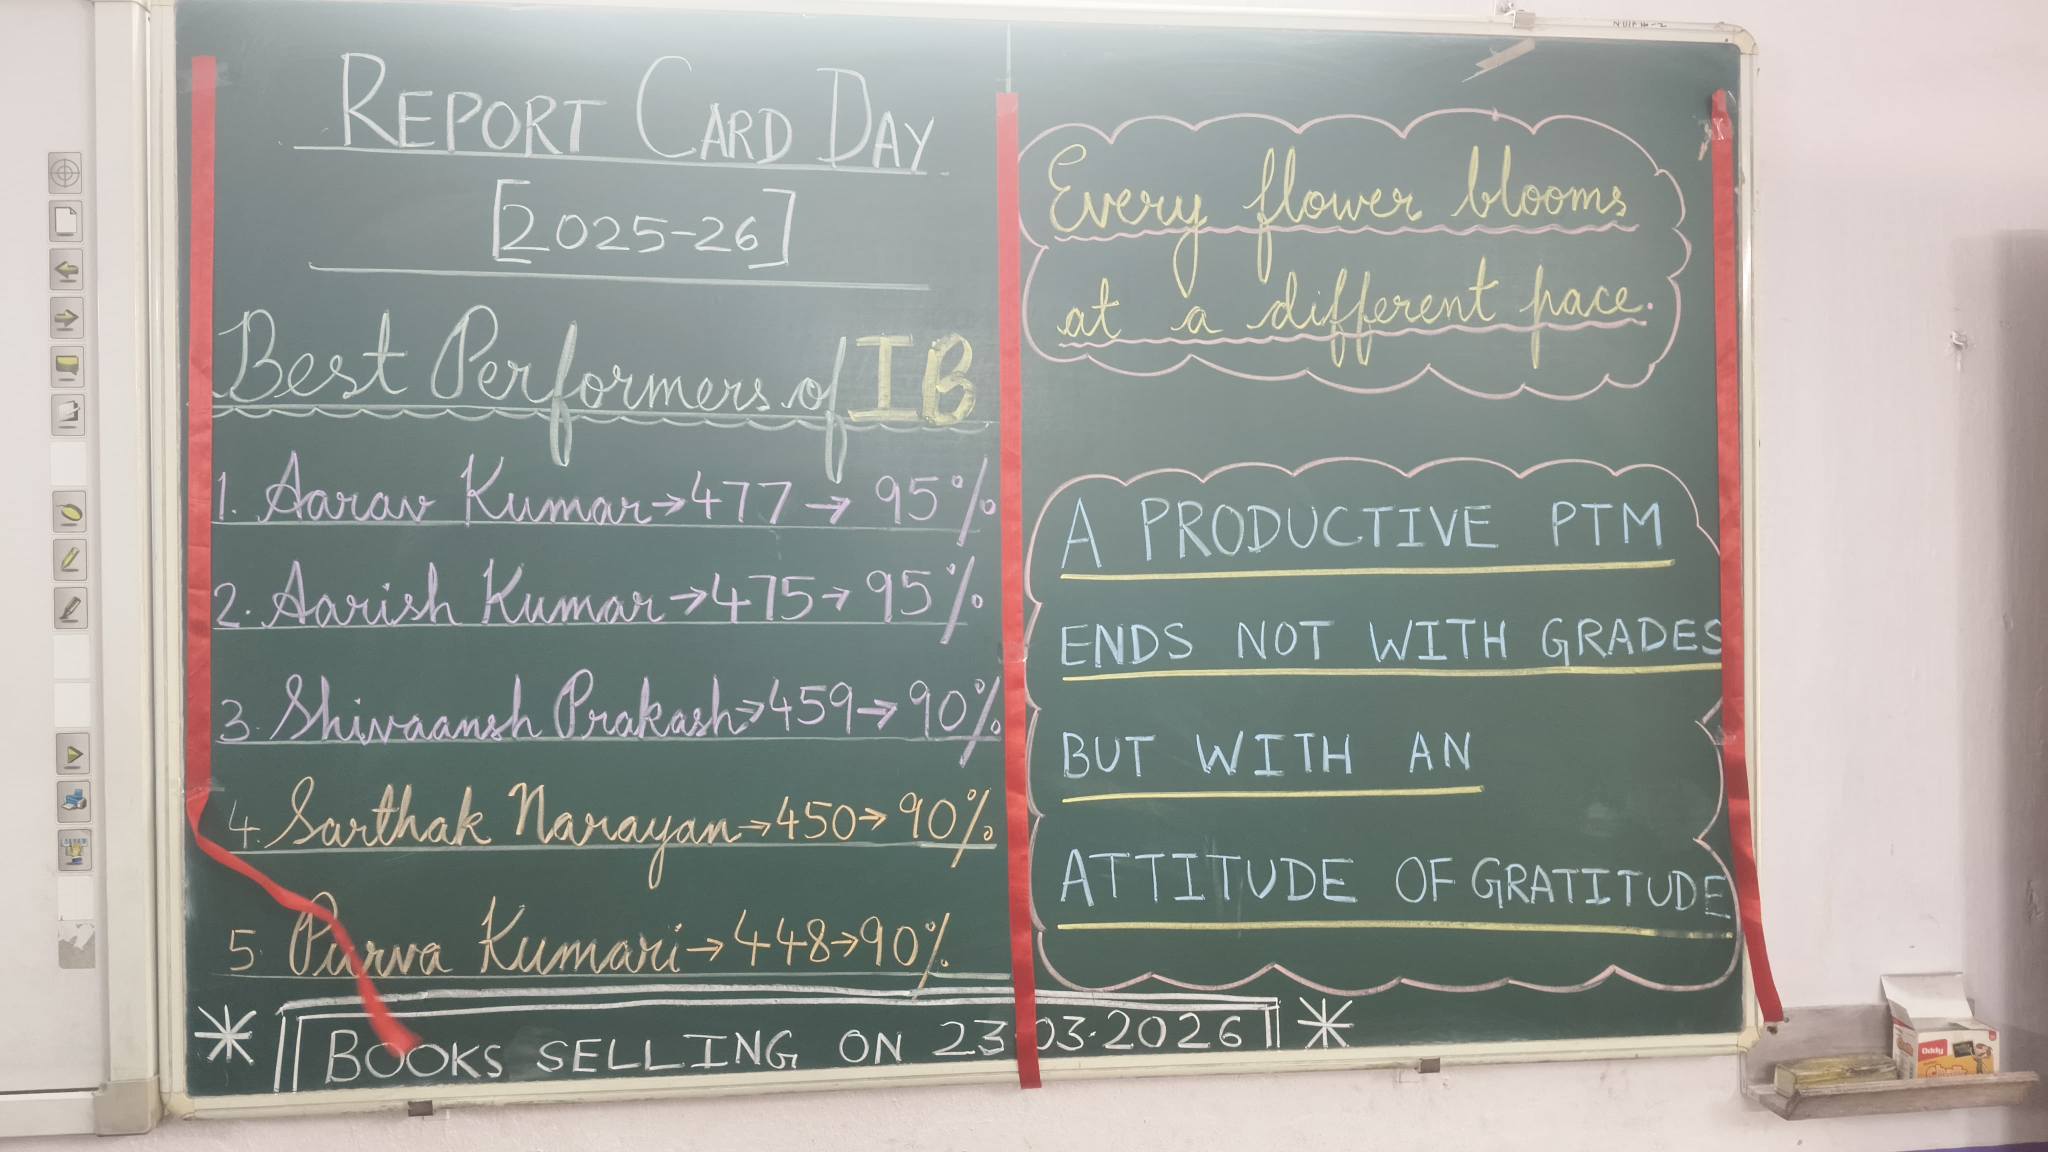 REPORT CARD DAY
[2025-26]
Best Performers of IB
1. Aarav Kumar→477→ 95%
2. Aarish Kumar→475→95%
3. Shivaansh Prakash→459→90%
4. Sarthak Narayan→450→90%
5. Purva Kumari→448→90%
BOOKS SELLING ON 23.03.2026
Every flower blooms
at a different pace.
A PRODUCTIVE PTM
ENDS NOT WITH GRADES
BUT WITH AN
ATTITUDE OF GRATITUDE
Oddy